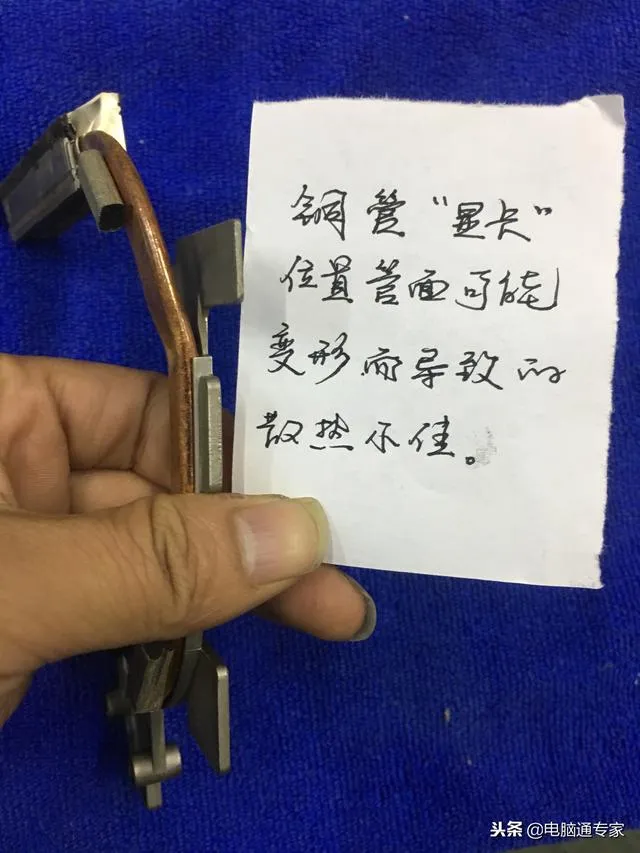 铜管“显卡”
位置管面可能
变形而导致的
散热不佳。
头条@电脑通专家